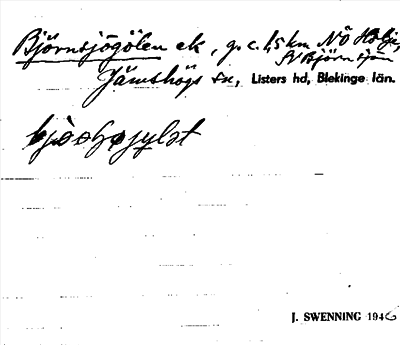 Björnsjögölen ek, g. c. 1,5 km NÖ Holje,
SV Björnsjön
Jämshögs sn, Listers hd, Blekinge län.
J. SWENNING 1946